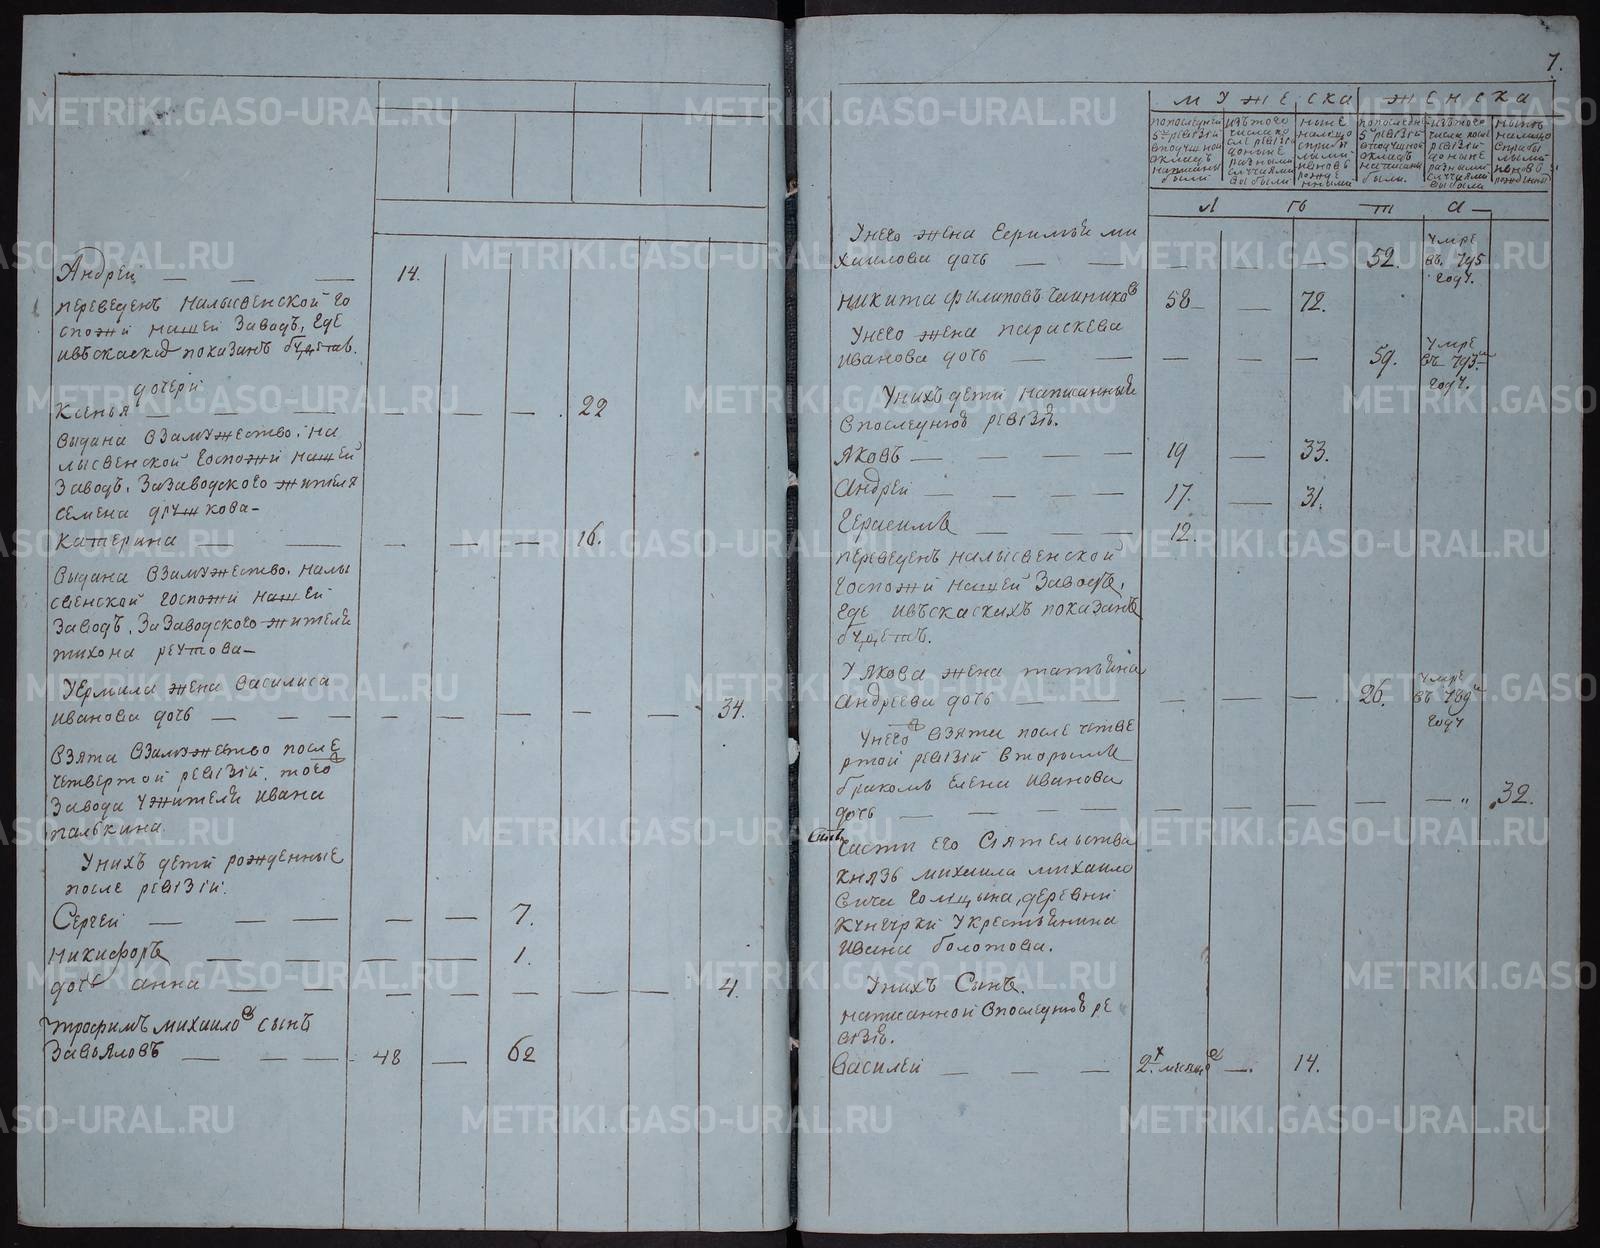 Андрей — — — 14.
переведенъ налысвенской го
спожи нашей Заводъ, где
будетъ.
дочери
Ксенья — — — — — — 22
выдана взамужество, на
лысвенской госпожи нашей
Заводъ, Зазаводского жителя
семена
Катерина — — — — — 16.
выдана взамужество, налы
свенской госпожи нашей
Заводъ, Зазаводского жителя
тихона
Уермила жена василиса
иванова дочь — — — — — — — — 34.
взята взамужество после
четвертой ревизии, того
завода ужителя ивана
палкина
Унихъ дети рожденные
после ревизии.
Сергей — — — — — 7.
никифоръ — — — — 1.
дочь анна — — — — — — — — 4.
трофимъ михаиловъ сынъ
Завьяловъ — — — 48 — 62
7.
мужеска женска
попоследней 5й ревизии вподушной окладъ написаны были
изътого числа после ревизии доныне разными случаями выбыли
ныне налицо сприбылыми ивновь рожденными
попоследней 5й ревизии вподушной окладъ написаны были.
изътого числа после ревизии доныне разными случаями выбыли
ныне налицо сприбылыми ивновь рожденными
Л Ѣ т а
Унего жена ми
хаилова дочь — — — — — 52. умре въ 795 году.
никита филиповъ 58 — 72.
Унего жена параскева
иванова дочь — — — — — 59. умре въ 793м году.
Унихъ дети написанные
впоследнюю ревизию.
Яковъ — — — — 19 — 33.
андрей — — — — 17. — 31.
Герасимъ — — — 12.
переведенъ налысвенской
госпожи нашей Заводъ,
где ивъсказкихъ показанъ
будетъ.
У Якова жена татьяна
андреева дочь — — — — — 26. умре въ 789м году
Унего взята после четве
ртой ревизии вторымъ
бракомъ елена иванова
дочь — — — — — — — — 32.
части его Сиятельства
князь михаила михаило
вича голицына, деревни
укрестьянина
ивана болотова.
Унихъ Сынъ.
написанной впоследнюю ре
визию.
василей — — — 2х месяцовъ — 14.
METRIKI.GASO-URAL.RU